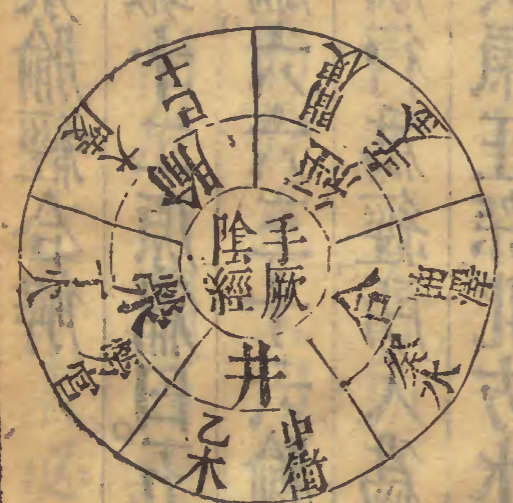 手厥
陰經
井
中衝
乙木
滎
勞宮
丁火
腧
大陵
己土
經
間使
辛金
合
曲澤
癸水